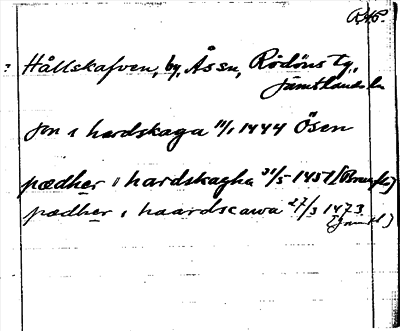 Hållskafven, by, Åssn, Rödöns tg.,
Jämtlands län
jon i hardskaga 11/1 1444 Ösen
pædher i hardskagha 31/5 1451 (Brunflo)
pædher i haardscawa 27/3 1473
(Jämtl)